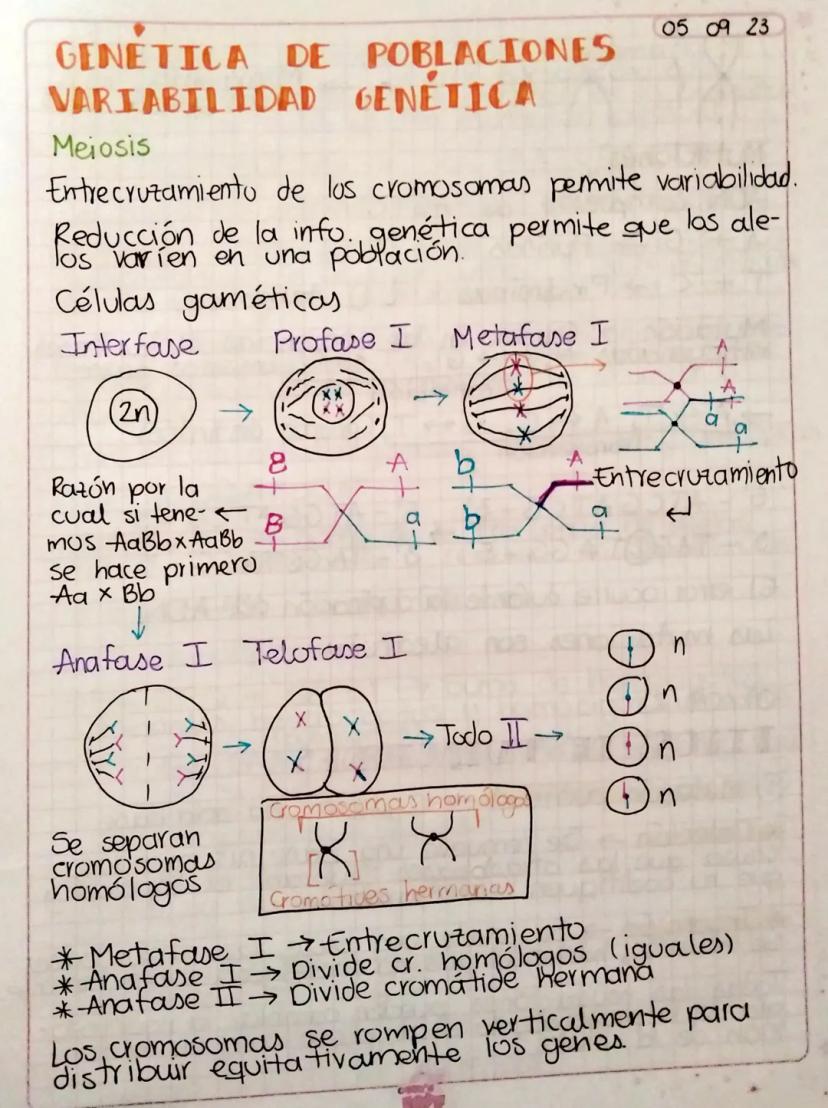 05 09 23
GENÉTICA DE POBLACIONES
VARIABILIDAD GENÉTICA
Meiosis
Entrecruzamiento de los cromosomas permite variabilidad.
Reducción de la info. genética permite que los ale-
los varíen en una población.
Células gaméticas
Interfase Profase I Metafase I
2n
A
A
a
a
B A b A Entrecruzamiento
B a b a
Razón por la
cual si tene-
mos AaBb x AaBb
se hace primero
Aa x Bb
Anafase I Telofase I
n
n
n
n
Todo II
Cromosomas homólogos
Cromatides hermanas
Se separan
cromosomas
homólogos
* Metafase I → Entrecruzamiento
* Anafase I → Divide cr. homólogos (iguales)
* Anafase II → Divide cromátide hermana
Los cromosomas se rompen verticalmente para
distribuir equitativamente los genes.